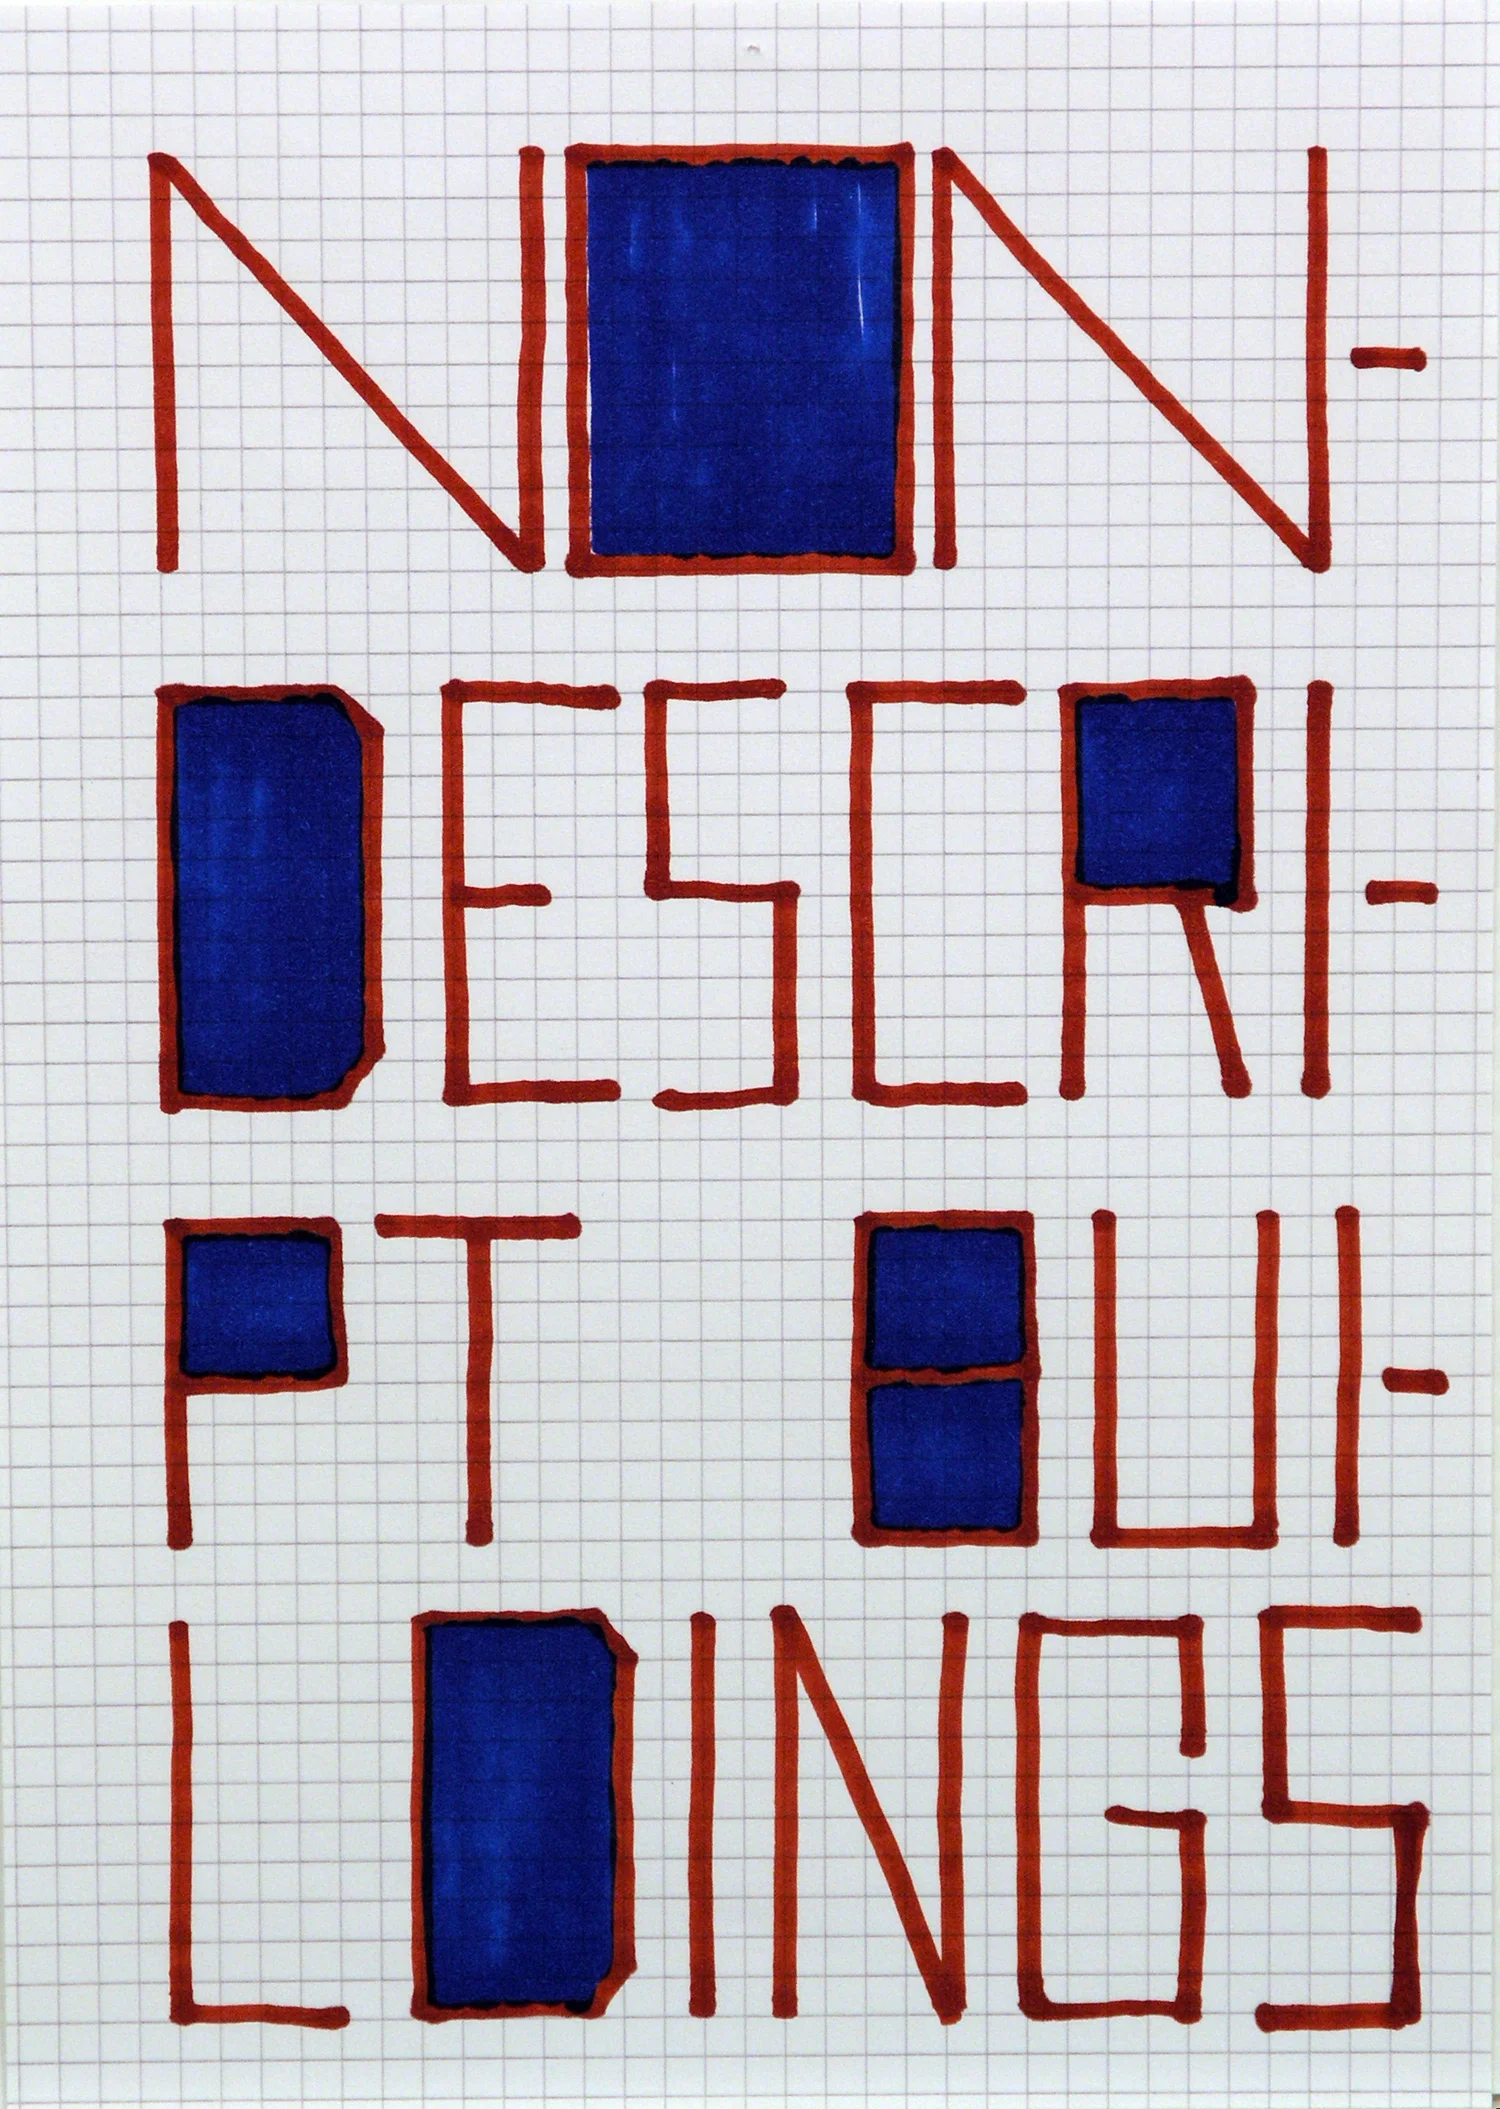 NON-
DESCRI-
PT BUI-
LDINGS